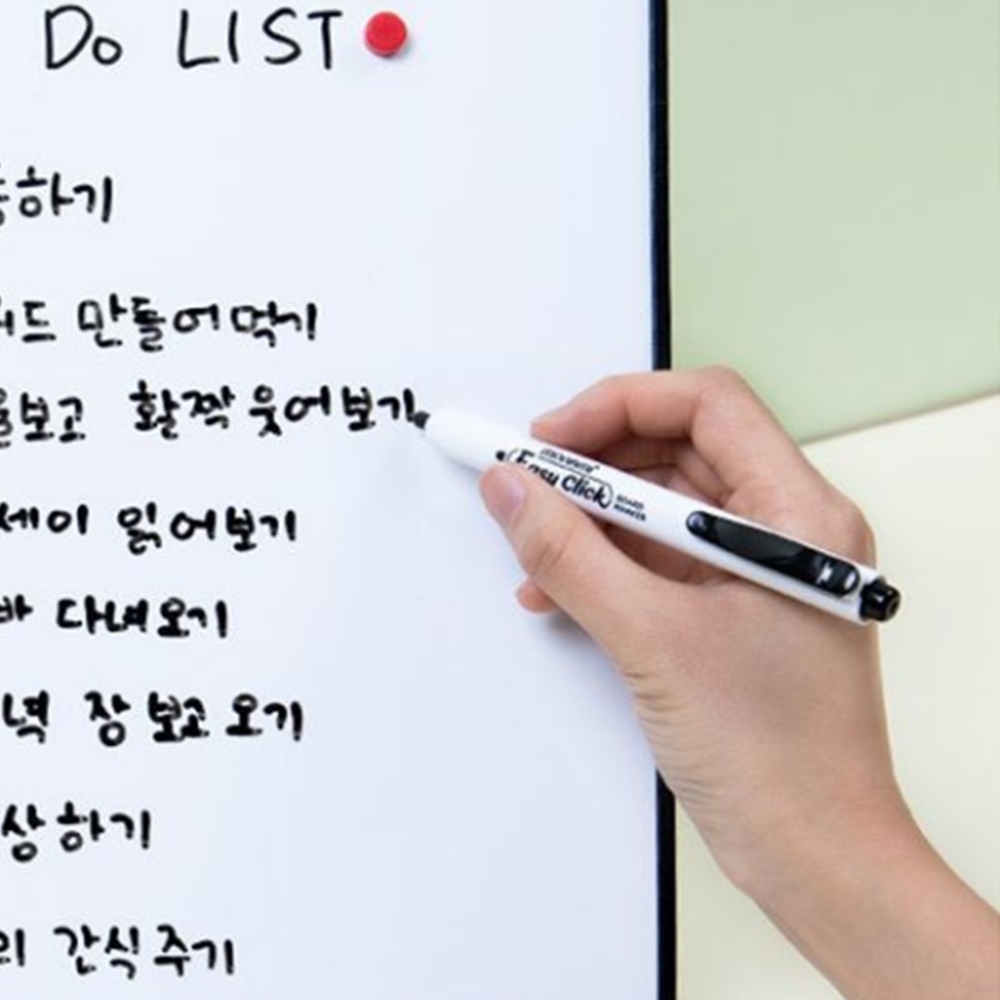 Do LIST
하기
만들어먹기
보고 활짝 웃어보기
세이 읽어보기
바 다녀오기
녁 장보고오기
상하기
의 간식주기
Easy Click
BOARD
MARKER